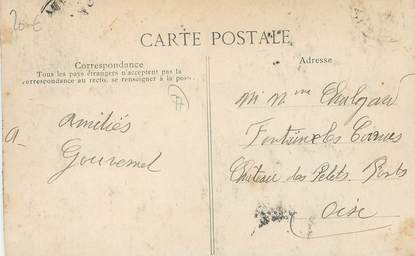 20 €
CARTE POSTALE
Correspondance
Tous les pays étrangers n'acceptent pas la
correspondance au recto, se renseigner à la poste
Adresse
Amitiés
Gouremel
Mr Mme
Fontaine les Cornues
Château des Pelets Ponts
Oise